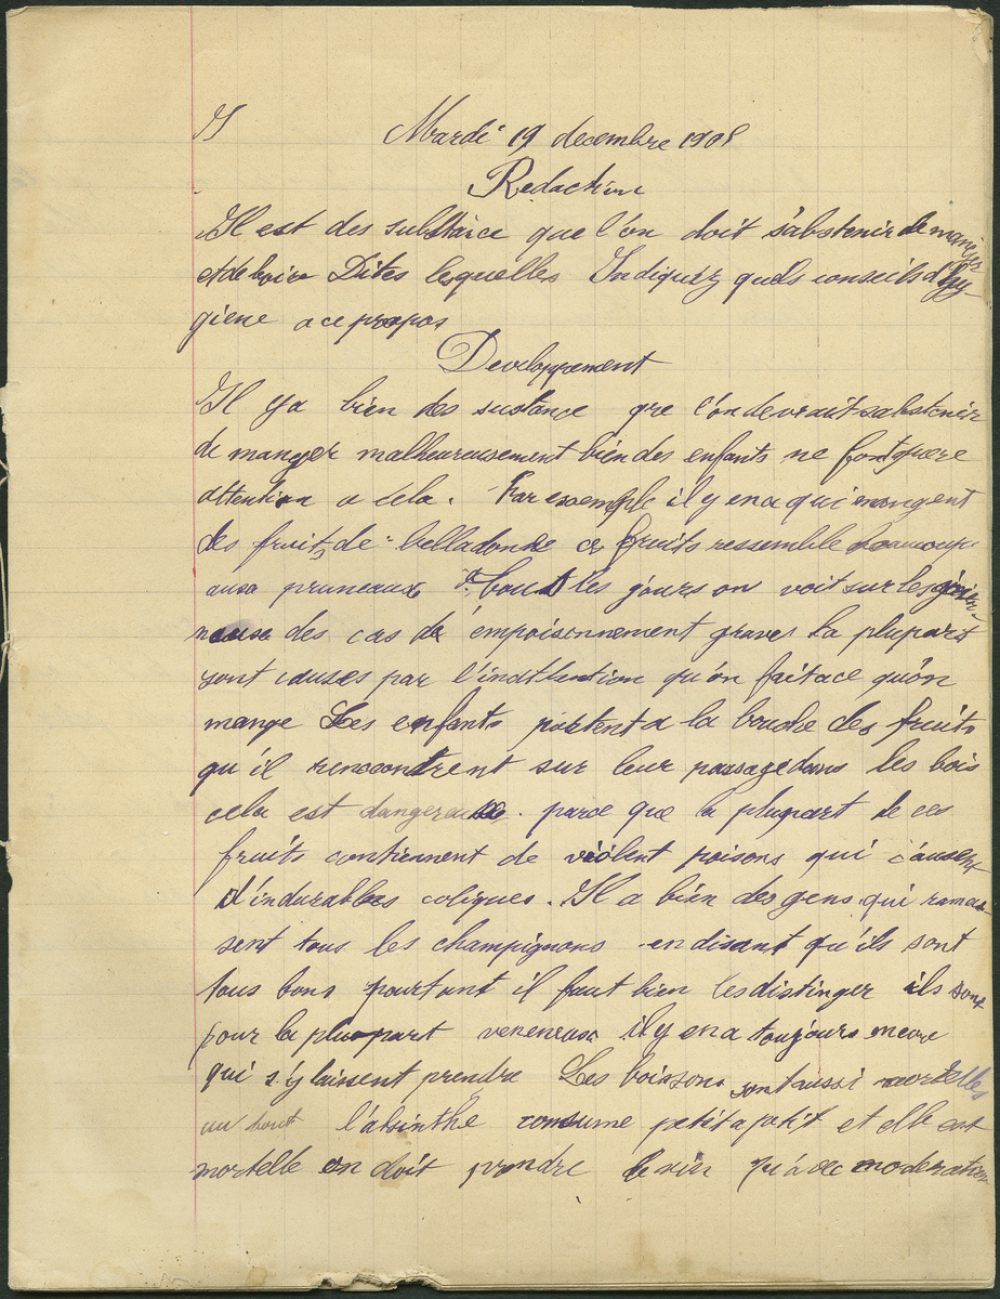 Mardi 19 decembre 1908
Redaction
Il est des substaice que l'on doit s'abstenir de manger
et de boire Dites lesquelles Indiquez quels conseils d'hy-
giene a ce propos
Developpement
Il ya bien des sustance que l'on devrait sabstenir
de manger malheureusement bien des enfants ne font guere
attention a cela. Par exsemple il y en a qui mangent
des fruits de belladonde ces fruits ressemble beaucoup
aux pruneaux. Tous les jours on voit sur les
des cas de empoisonnement graves la plupart
sont causés par l'inattention qu'on fait a ce qu'on
mange Les enfants portent a la bouche des fruits
qu'il renscontrent sur leur passage dans les bois
cela est dangereuse. parce que la plupart de ces
fruits contiennent de violent poisons qui causent
d'indurables coliques. Il a bien des gens qui ramas-
sent tous les champignons en disant qu'ils sont
tous bons pourtant il faut bien les distinger ils sont
pour la plupart il y en a toujours encore
qui s'y laissent prendre Les boissons sont aussi mortelles
au bout l'absinthe consume petit a petit et elle est
mortelle on doit prendre le vin qu'avec moderation